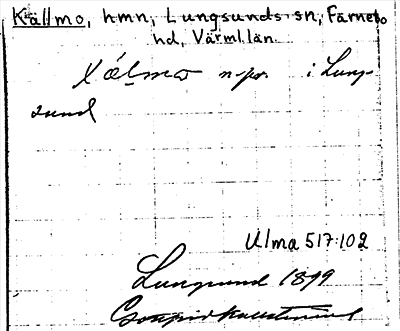 Källmo, hmn, Lungsunds sn, Färnebo
hd, Värml. län.
Xälmo n-pr. i Lung-
sund
Ulma 517:102
Lungsund 1899